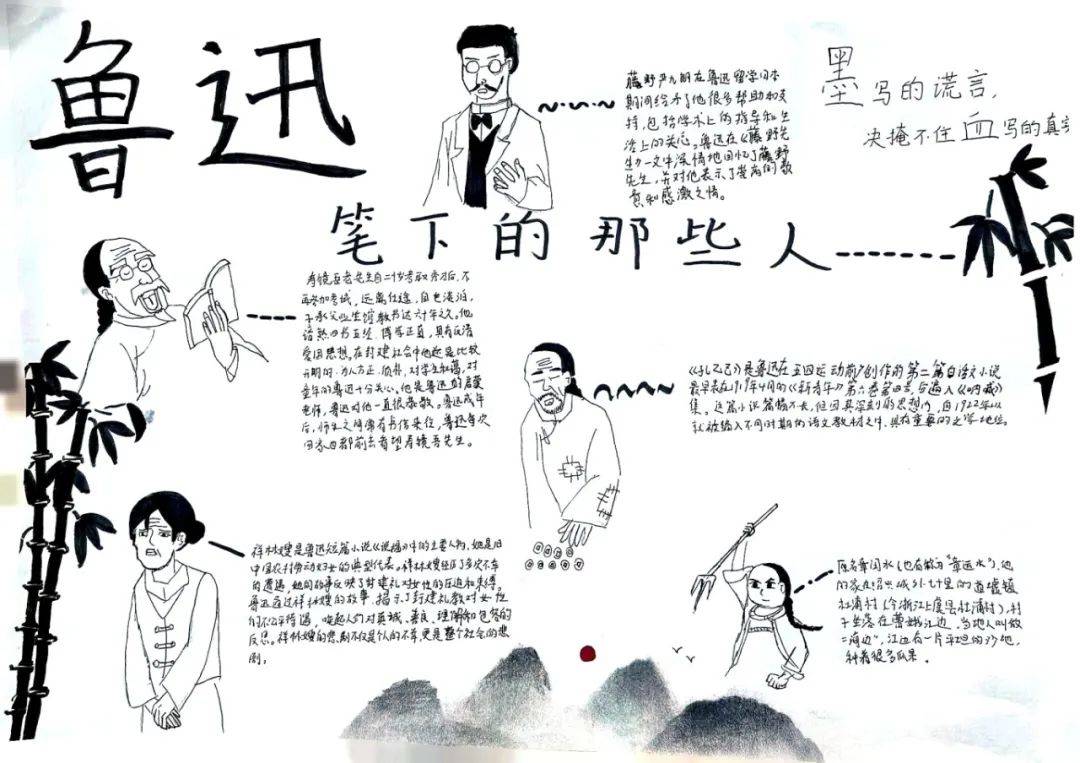 鲁迅
笔下的那些人
墨写的谎言,
决掩不住血写的真
藤野严九郎在鲁迅留学日本
期间给予了他很多帮助和支
持,包括学术上的指导和生
活上的关心。鲁迅在《藤野先
生》一文中深情地回忆了藤野
先生,并对他表示了崇高的敬
意和感激之情。
寿镜吾老先生自二十岁考取秀才后,不
再参加考试,远离仕途,自甘淡泊,
子承父业坐馆教书达六十年之久。他
谙熟四书五经,博学正直,具有反清
爱国思想。在封建社会中他还是比较
开明的,为人方正、质朴,对学生和蔼,对
童年的鲁迅十分关心,他是鲁迅的启蒙
老师,鲁迅对他一直很恭敬。鲁迅成年
后,师生之间常有书信来往,鲁迅每次
回家乡都前去看望寿镜吾先生。
《孔乙己》是鲁迅在五四运动前夕创作的第二篇白话文小说
最早发在1919年4月的《新青年》第六卷第四号,后编入《呐喊》
集。这篇小说篇幅不长,但因其深刻的思想内,自1922年以
就被编入不同时期的语文教材之中,具有重要的文学地位。
祥林嫂是鲁迅短篇小说《祝福》中的主要人物,她是旧
中国农村劳动妇女的典型代表。祥林嫂经历了多次不幸
的遭遇,她的故事反映了封建礼对女性的压迫和束缚。
鲁迅通过祥林嫂的故事,揭示了封建礼教对女性
们不公平待遇,唤起人们对真诚、善良、理解和包容的
反思。祥林嫂的悲剧不仅是个人的不幸,更是整个社会的悲
剧。
原名章闰水(也有做为"章运水"),他
的家在绍兴城外七十里的道墟镇
杜浦村(今浙江上虞县杜浦村),村
子坐落在曹娥江边,当地人叫做
"海边",江边有一片平坦的沙地,
种着很多瓜果。